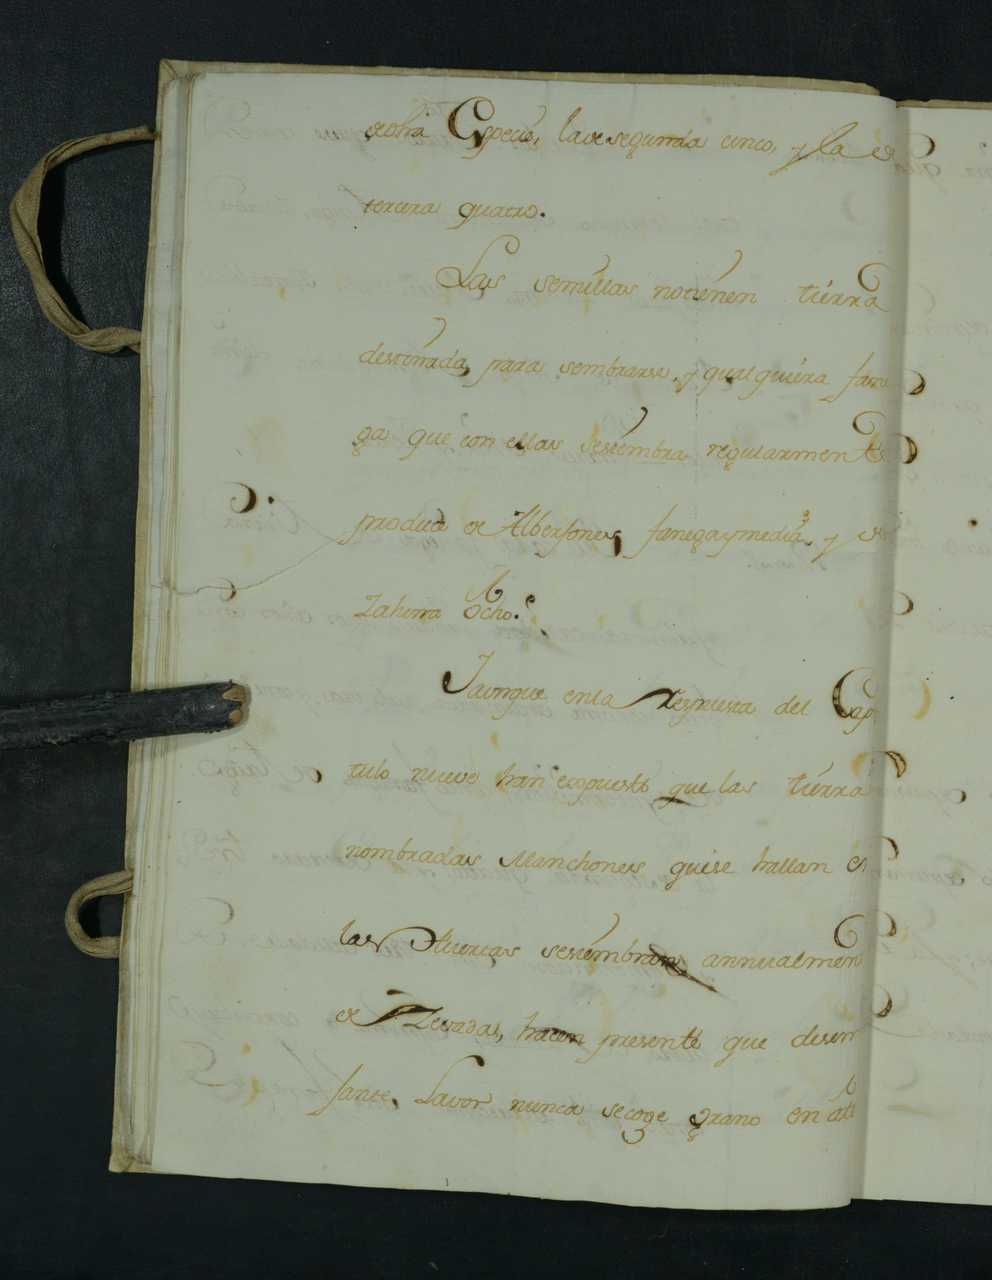 dotra Especie, lade segunda cinco, y la de
tercera quatro.
Las semillas notienen tierra
destinada para sembrarse, y qualquiera fane
ga que con ellas sesiembra regularmente
produce de Alberjones fanegaymedia, y de
Zahena Ocho.
Yaunque enla Respuesta del Capi
tulo nueve han expuesto que las tierra
nombradas Manchones quese hallan en
las Huertas sesiembran annualmen
de Zevadas, hacen presente que desem
jante Lavor nunca secoge grano en